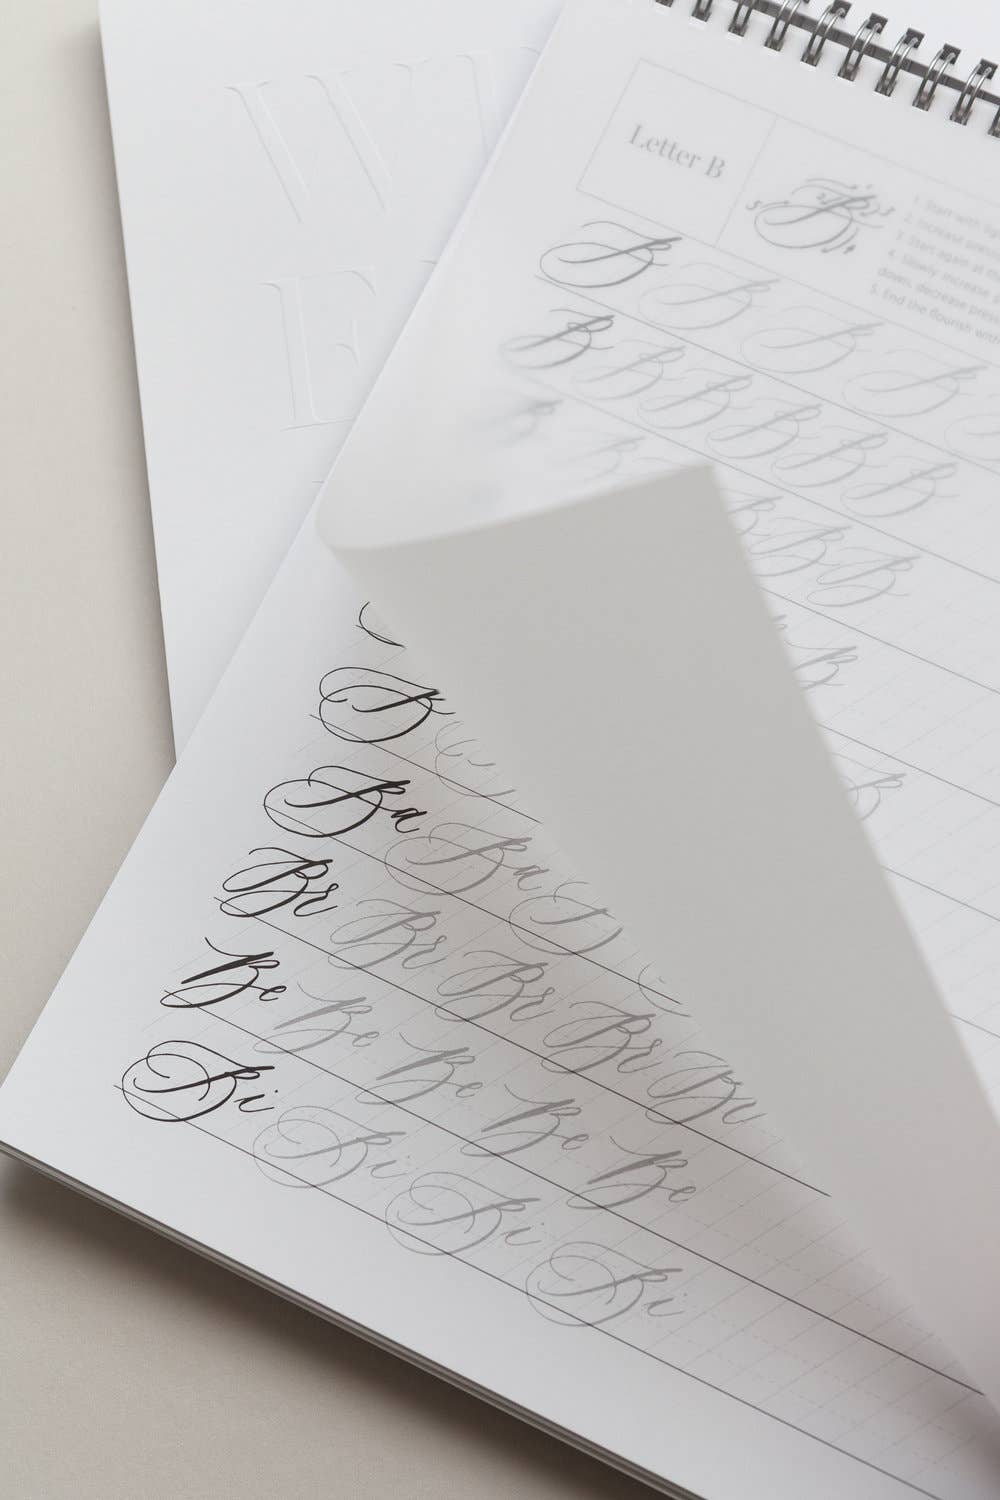 W
E
Letter B
1. Start with
2. Increase
3. Start again at
4. Slowly increase
down, decrease
5. End the flourish with
B B B B B
B B B B B B
B B B
B
B
B
Ba Ba
Br Br Br Br Br
Be Be Be Be Be
Bi Bi Bi Bi